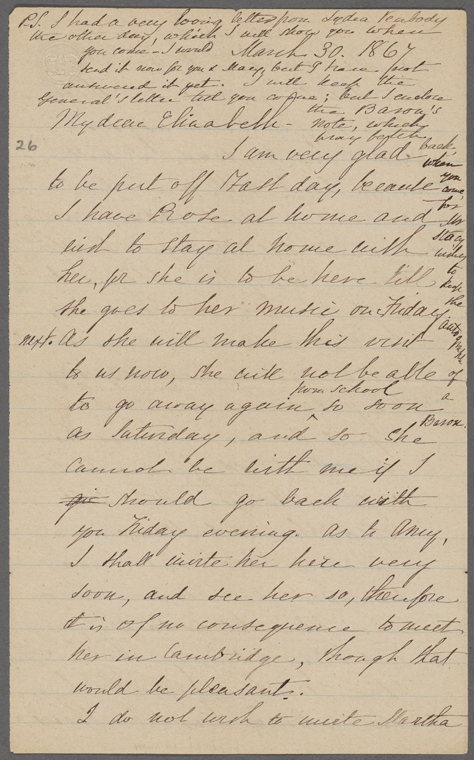 P.S. I had a very loving letter from Lydia Peabody
the other day, which I will show you when
you come - I would
March 30. 1867
send it now for you & Mary, but I have not
answered it yet. I will keep the
General's letter till you come; but I enclose
the Baron's
My dear Elizabeth - note, which
pray bring
back
26
when
you
come,
for
stay
wishes
to
keep
the
autograph
of
a
Baron.
I am very glad
to be put off Fast day, because
I have Rose at home and
wish to stay at home with
her, for she is to be here till
she goes to her music on Friday
next. As she will make this visit
to us now, she will not be able
from school
to go away again ^ so soon
as Saturday, and so she
cannot be with me if I
should go back with
you Friday evening. As to Amy,
I shall invite her here very
soon, and see her so, therefore
it is of no consequence to meet
her in Cambridge, though that
would be pleasant.
I do not wish to invite Martha